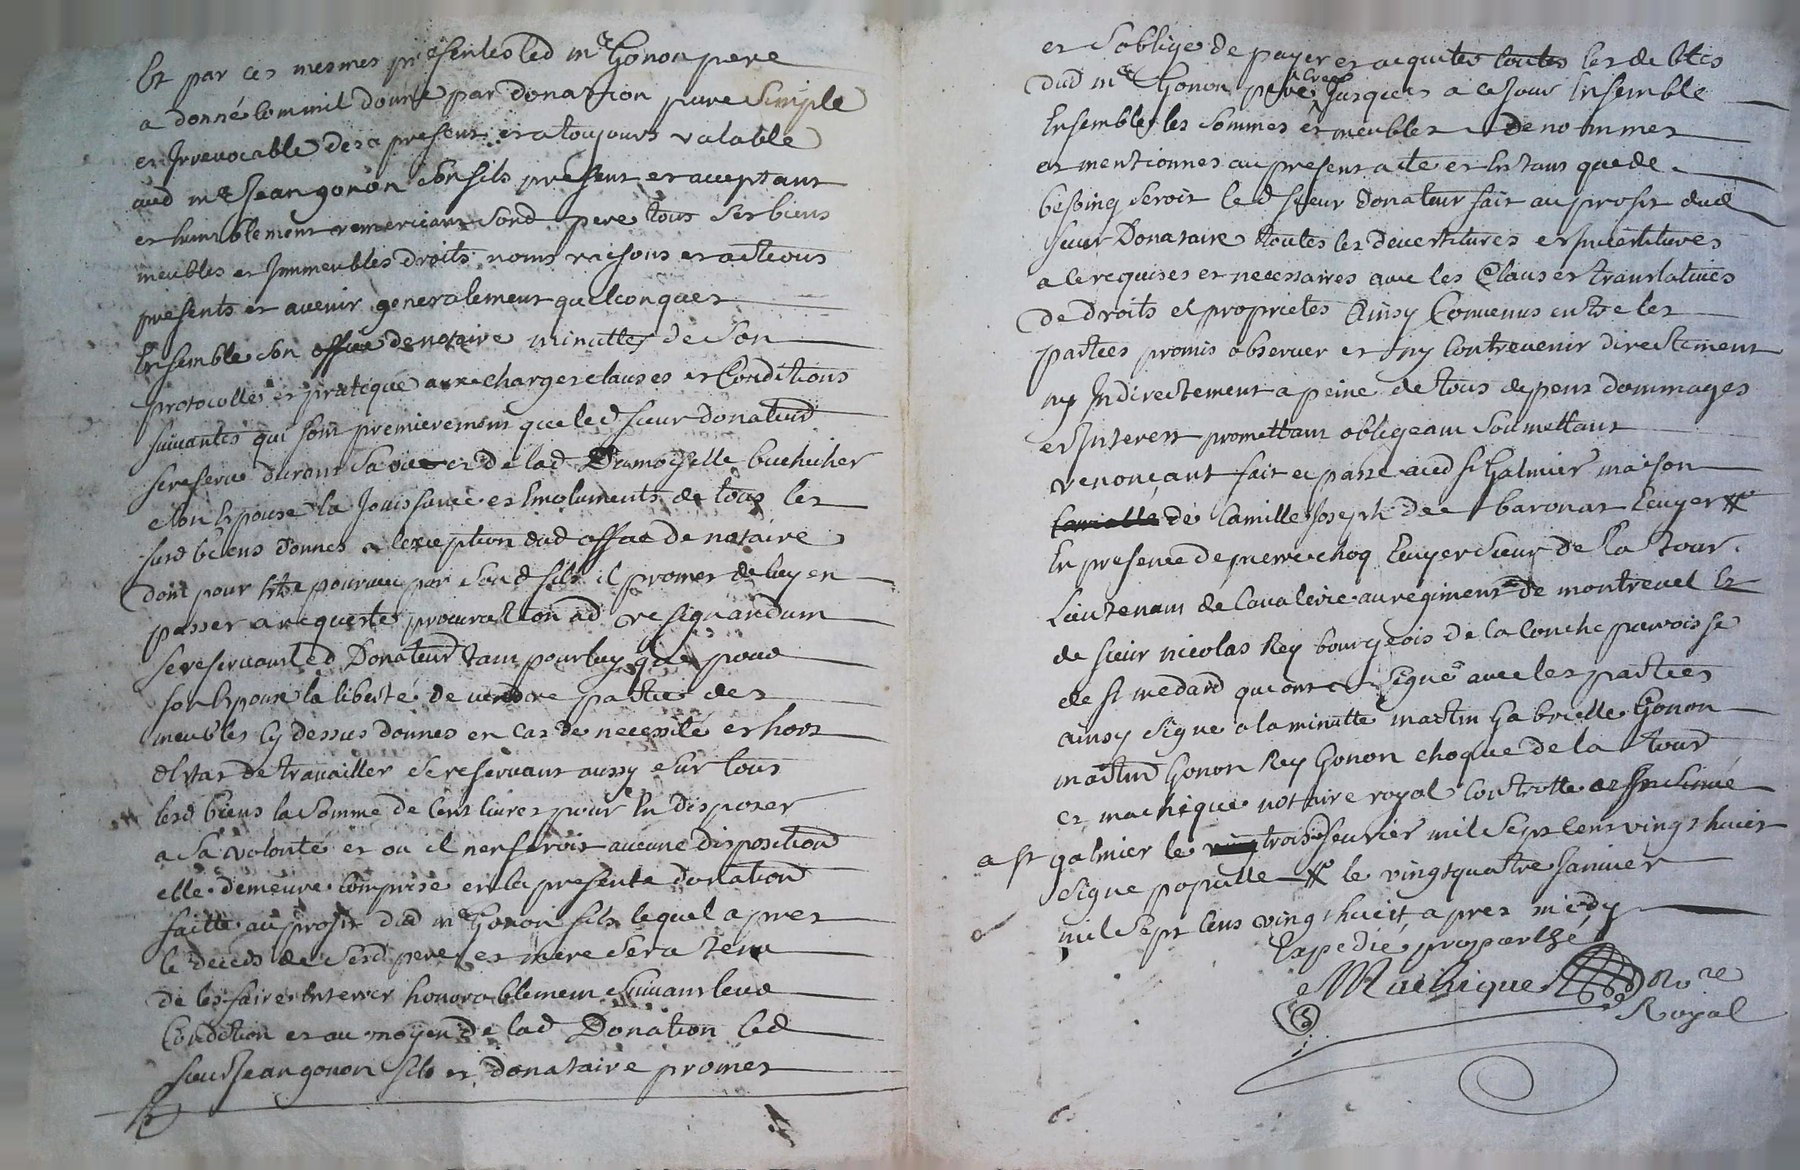 Et par ces mesmes presentes led me Gonon pere
a donné comm'il donne par donation pure simple
et Irrevocable des a present et a toujours valable
aud me Jean gonon son fils present et acceptant
et humblement remerciant sond pere tous ses biens
meubles et Immeubles droits noms raisons et actions
presents et avenir generalement quelconques
Ensemble son office de notaire minuttes de son
protocolle et pratique aux charges clauses et Conditions
suivantes qui sont premierement que led sieur donateur
se reserve durant sa vie et de lad Demoiselle
son Epouse la Jouissance et Emoluments de tous les
susd biens donnes a lexception dud office de notaire
dont pour etre pourveu par sond fils il promet de luy en
passer a requeste procuration ad resignandum
se reservant led Donateur tant pour luy que pour
son Epouse la liberté de vendre partie des
meubles Cy dessus donnes en cas de necessité et hors
d'Etat de travailler se reservant aussy sur tous
lesd biens la somme de Cent livres pour En disposer
a sa volonté et ou il n'en feroit aucune disposition
elle demeure comprise en la presente donation
faitte au profit dud me Gonon fils lequel apres
le deceds de sesd pere et mere sera tenu
de les faire Enterrer honorablement suivant leur
Condition et au moyen de lad Donation led
sieur Jean gonon fils et donataire promet
et s'oblige de payer et acquiter toutes les debtes
dud me Gonon pere Crees Jusques a ce Jour Ensemble
Ensemble les sommes et meubles denommes
et mentionnes au present acte et En tant que de
besoing seroit led sieur Donateur fait au profit dud
sieur Donataire toutes les devestitures et Investitures
a ce requises et necessaires avec les Clauses translatives
de droits et proprietes Ainsy Convenus entre les
parties promis observer et ny Contrevenir directement
ny Indirectement a peine de tous depens dommages
et Interest promettant obligeant soumettant
renonçant fait et passé aud st Galmier maison
de Camille Joseph de baronat Ecuyer #
En presence de pierre choq Ecuyer sieur de la tour
Lieutenant de Cavalerie au regiment de montrevel Et
de sieur nicolas Rey bourgeois de la Conche parroisse
de st medard qui ont signé avec les parties
ainsy signe a la minutte martin Gabrielle Gonon
martin Gonon Rey Gonon choque de la tour
et machique notaire royal Controlle et Insinué
a st galmier le trois fevrier mil sept cent vingt huict
signe popuille # le vingt quatre Janvier
mil sept cens vingt huict apres midy
Expedie
Machique No.re
Royal